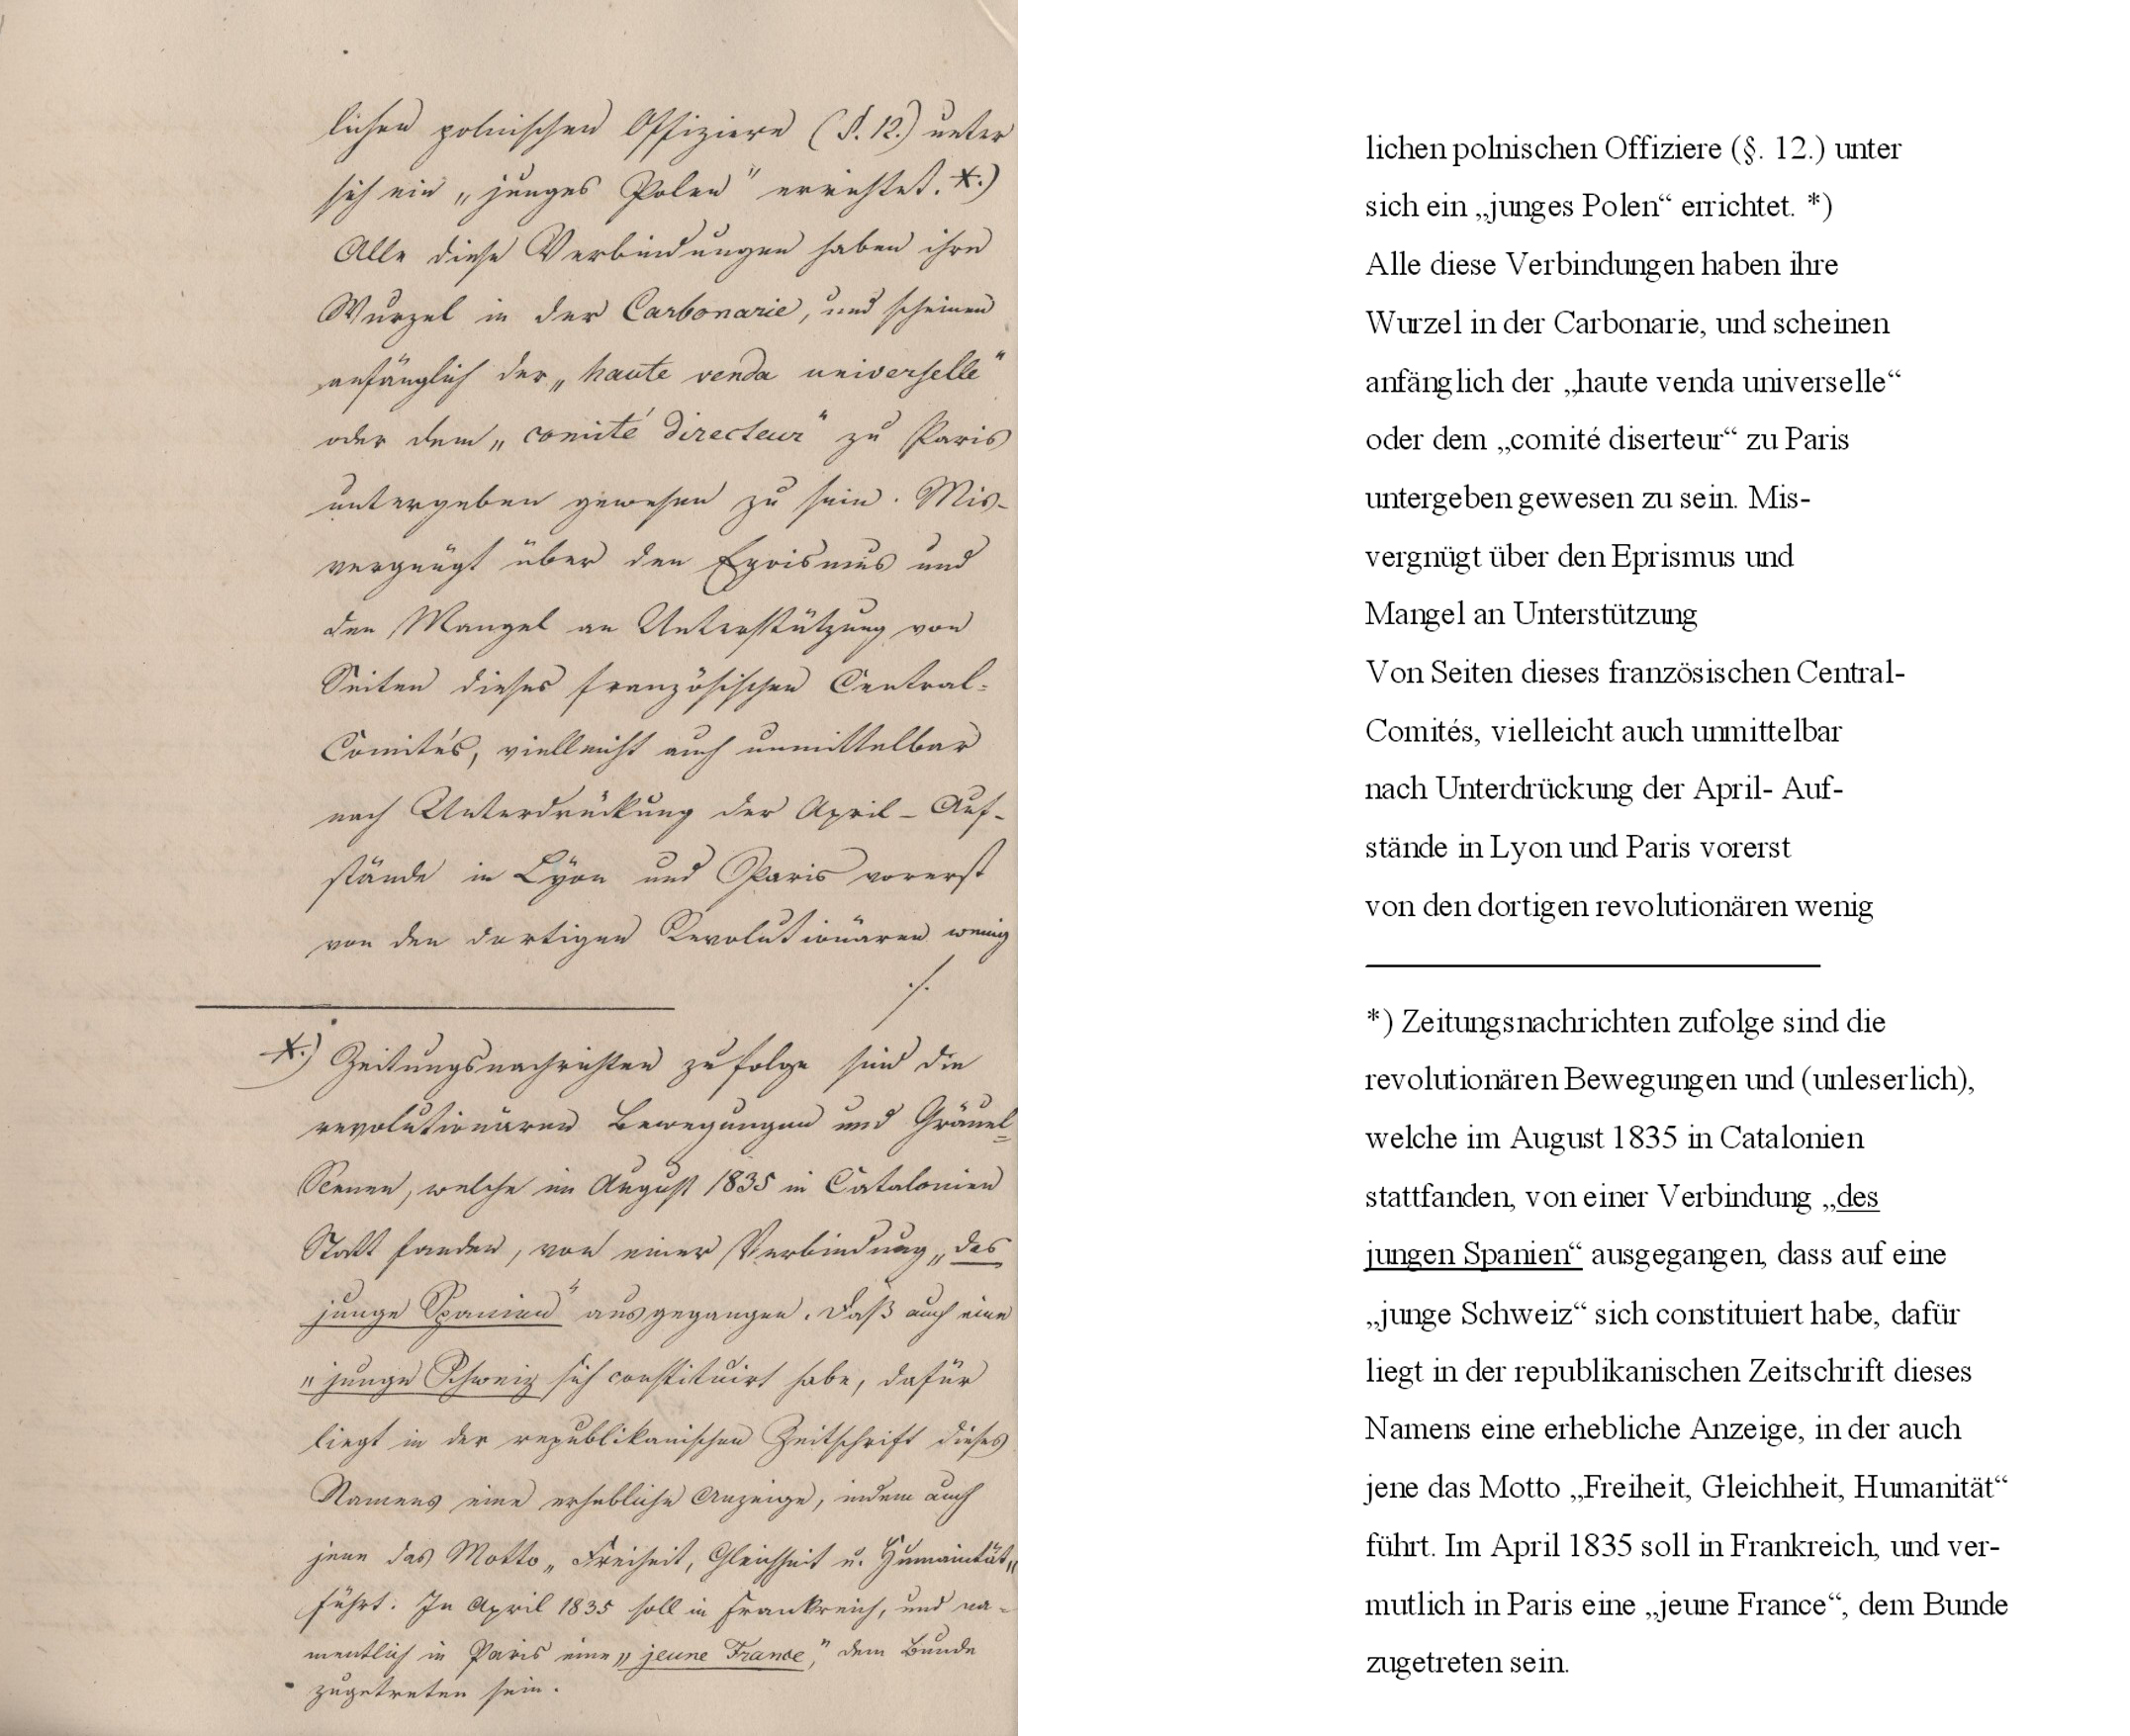 lichen polnischen Offiziere (§. 12.) unter
sich ein „junges Polen" errichtet. *.)
Alle diese Verbindungen haben ihre
Wurzel in der Carbonarie, und scheinen
anfänglich der „haute venda universelle"
oder dem „comité directeur" zu Paris
untergeben gewesen zu sein. Mis-
vergnügt über den Egoismus und
den Mangel an Unterstützung von
Seiten dieses französischen Central-
Comités, vielleicht auch unmittelbar
nach Unterdrückung der April-Auf-
stände in Lÿon und Paris vorerst
von den dortigen Revolutionären wenig
./.
*.) Zeitungsnachrichten zufolge sind die
revolutionären Bewegungen und Gräuel-
Scenen, welche im August 1835 in Catalonien
Statt fanden, von einer Verbindung „das
junge Spanien" ausgegangen. Daß auch eine
„junge Schweiz sich constituirt habe, dafür
liegt in der republikanischen Zeitschrift dieses
Namens eine erhebliche Anzeige, indem auch
jene das Motto „Freiheit, Gleichheit u. Humanität„
führt. Im April 1835 soll in Frankreich, und na-
mentlich in Paris eine „jeune France," dem Bunde
zugetreten sein.
lichen polnischen Offiziere (§. 12.) unter
sich ein „junges Polen“ errichtet. *)
Alle diese Verbindungen haben ihre
Wurzel in der Carbonarie, und scheinen
anfänglich der „haute venda universelle“
oder dem „comité diserteur“ zu Paris
untergeben gewesen zu sein. Mis-
vergnügt über den Eprismus und
Mangel an Unterstützung
Von Seiten dieses französischen Central-
Comités, vielleicht auch unmittelbar
nach Unterdrückung der April- Auf-
stände in Lyon und Paris vorerst
von den dortigen revolutionären wenig
*) Zeitungsnachrichten zufolge sind die
revolutionären Bewegungen und (unleserlich),
welche im August 1835 in Catalonien
stattfanden, von einer Verbindung „des
jungen Spanien“ ausgegangen, dass auf eine
„junge Schweiz“ sich constituiert habe, dafür
liegt in der republikanischen Zeitschrift dieses
Namens eine erhebliche Anzeige, in der auch
jene das Motto „Freiheit, Gleichheit, Humanität“
führt. Im April 1835 soll in Frankreich, und ver-
mutlich in Paris eine „jeune France“, dem Bunde
zugetreten sein.